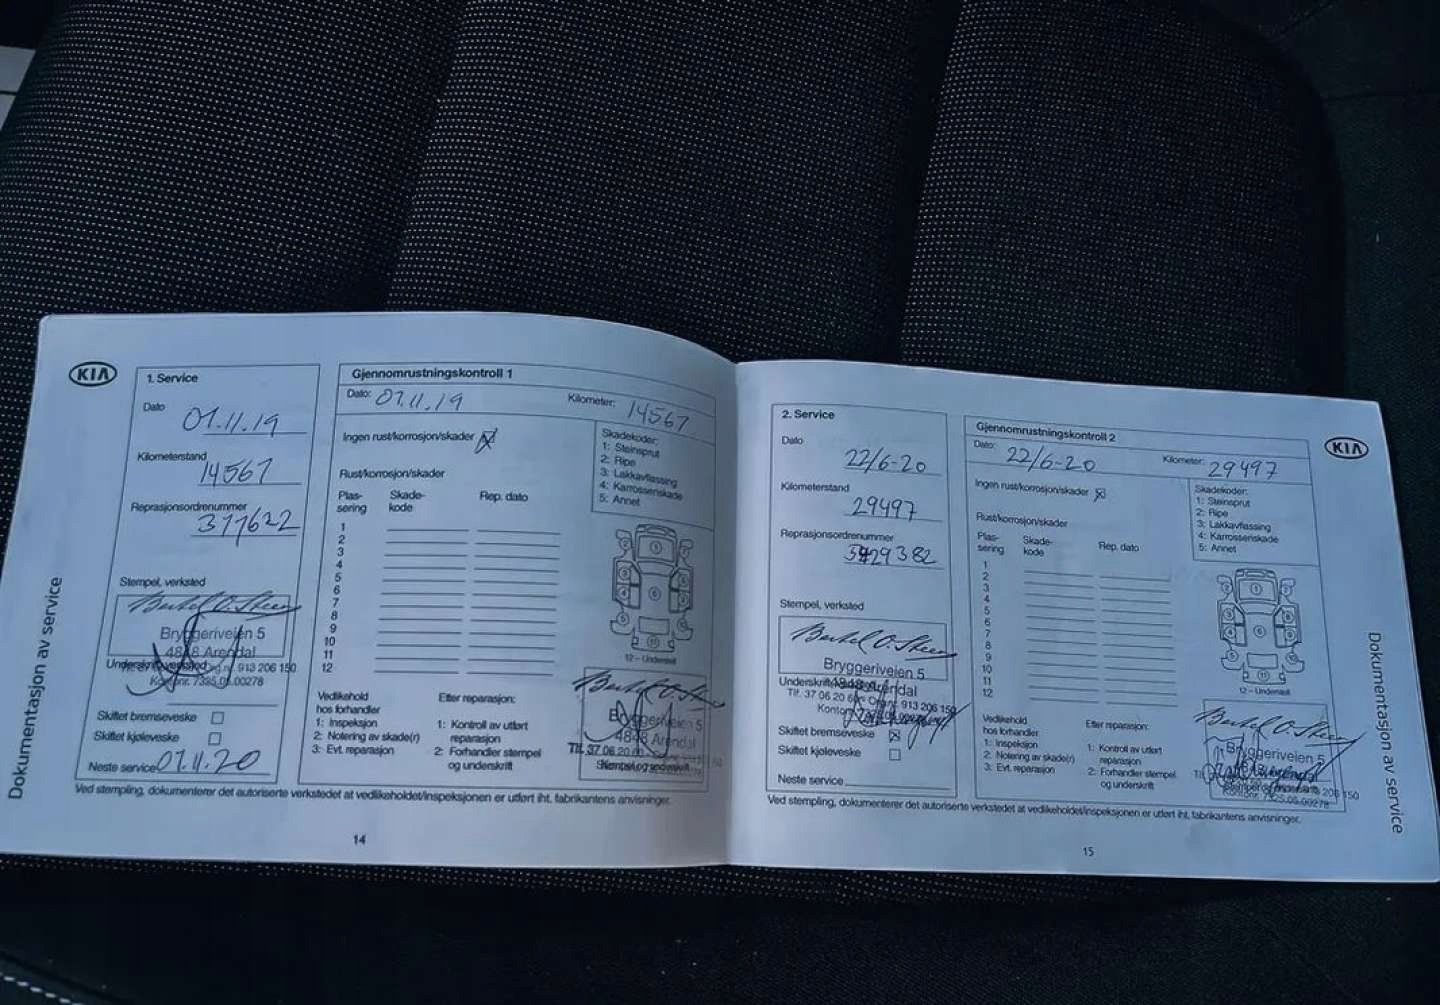 Dokumentasjon av service
KIA
1. Service
Dato
01.11.19
Kilometerstand
14567
Reprasjonsordrenummer
Stempel, verksted
Bryggeriveien 5
4848 Arendal
Underskrift verksted
Org.nr. 913 206 150
Kontonr. 7325.05.00278
Skiftet bremsevæske
Skiftet kjølevæske
Neste service 01.11.20
Gjennomrustningskontroll 1
Dato: 01.11.19
Kilometer: 14567
Ingen rust/korrosjon/skader
Rust/korrosjon/skader
Plas-
sering
Skade-
kode
Rep. dato
1
2
3
4
5
6
7
8
9
10
11
12
Skadekoder:
1: Steinsprut
2: Ripe
3: Lakkavflassing
4: Karrosseriskade
5: Annet
12 – Understell
Vedlikehold
hos forhandler
1: Inspeksjon
2: Notering av skade(r)
3: Evt. reparasjon
Etter reparasjon:
1: Kontroll av utført
reparasjon
2: Forhandler stempel
og underskrift
Bryggeriveien 5
4848 Arendal
Tlf. 37 06 20
Stempel og underskrift
Ved stempling, dokumenterer det autoriserte verkstedet at vedlikeholdet/inspeksjonen er utført iht. fabrikantens anvisninger.
14
2. Service
Dato
22/6-20
Kilometerstand
29497
Reprasjonsordrenummer
Stempel, verksted
Bryggeriveien 5
4848 Arendal
Tlf. 37 06 20 Org.nr. 913 206 150
Skiftet bremsevæske
Skiftet kjølevæske
Neste service
Gjennomrustningskontroll 2
Dato: 22/6-20
Kilometer: 29497
Ingen rust/korrosjon/skader
Rust/korrosjon/skader
Plas-
sering
Skade-
kode
Rep. dato
1
2
3
4
5
6
7
8
9
10
11
12
Skadekoder:
1: Steinsprut
2: Ripe
3: Lakkavflassing
4: Karrosseriskade
5: Annet
12 – Understell
Vedlikehold
hos forhandler
1: Inspeksjon
2: Notering av skade(r)
3: Evt. reparasjon
Etter reparasjon:
1: Kontroll av utført
reparasjon
2: Forhandler stempel
og underskrift
Bryggeriveien 5
Kontonr. 7325.05.00278
Ved stempling, dokumenterer det autoriserte verkstedet at vedlikeholdet/inspeksjonen er utført iht. fabrikantens anvisninger.
15
KIA
Dokumentasjon av service